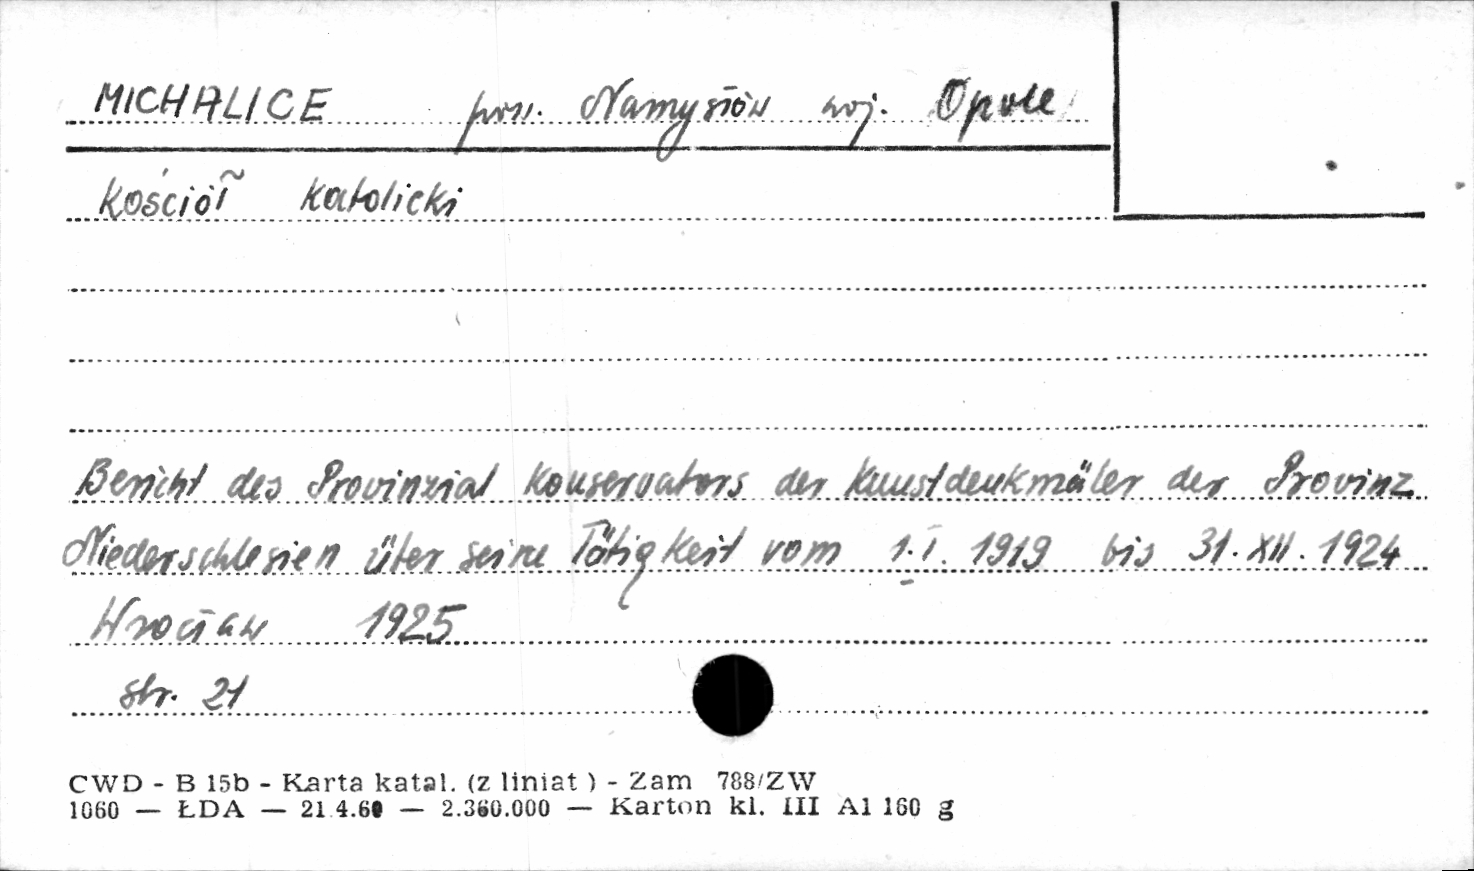 MICHALICE pow. Namysłów woj. Opole
Kościół katolicki
Bericht des Provinzial Konservators der Kunstdenkmäler der Provinz
Niederschlesien über seine Tätigkeit vom 1.I. 1919 bis 31.XII.1924
Wrocław 1925
str. 21
CWD - B 15b - Karta katal. (z liniat ) - Zam 788/ZW
1060 — ŁDA — 21.4.60 — 2.360.000 — Karton kl. III A1 160 g